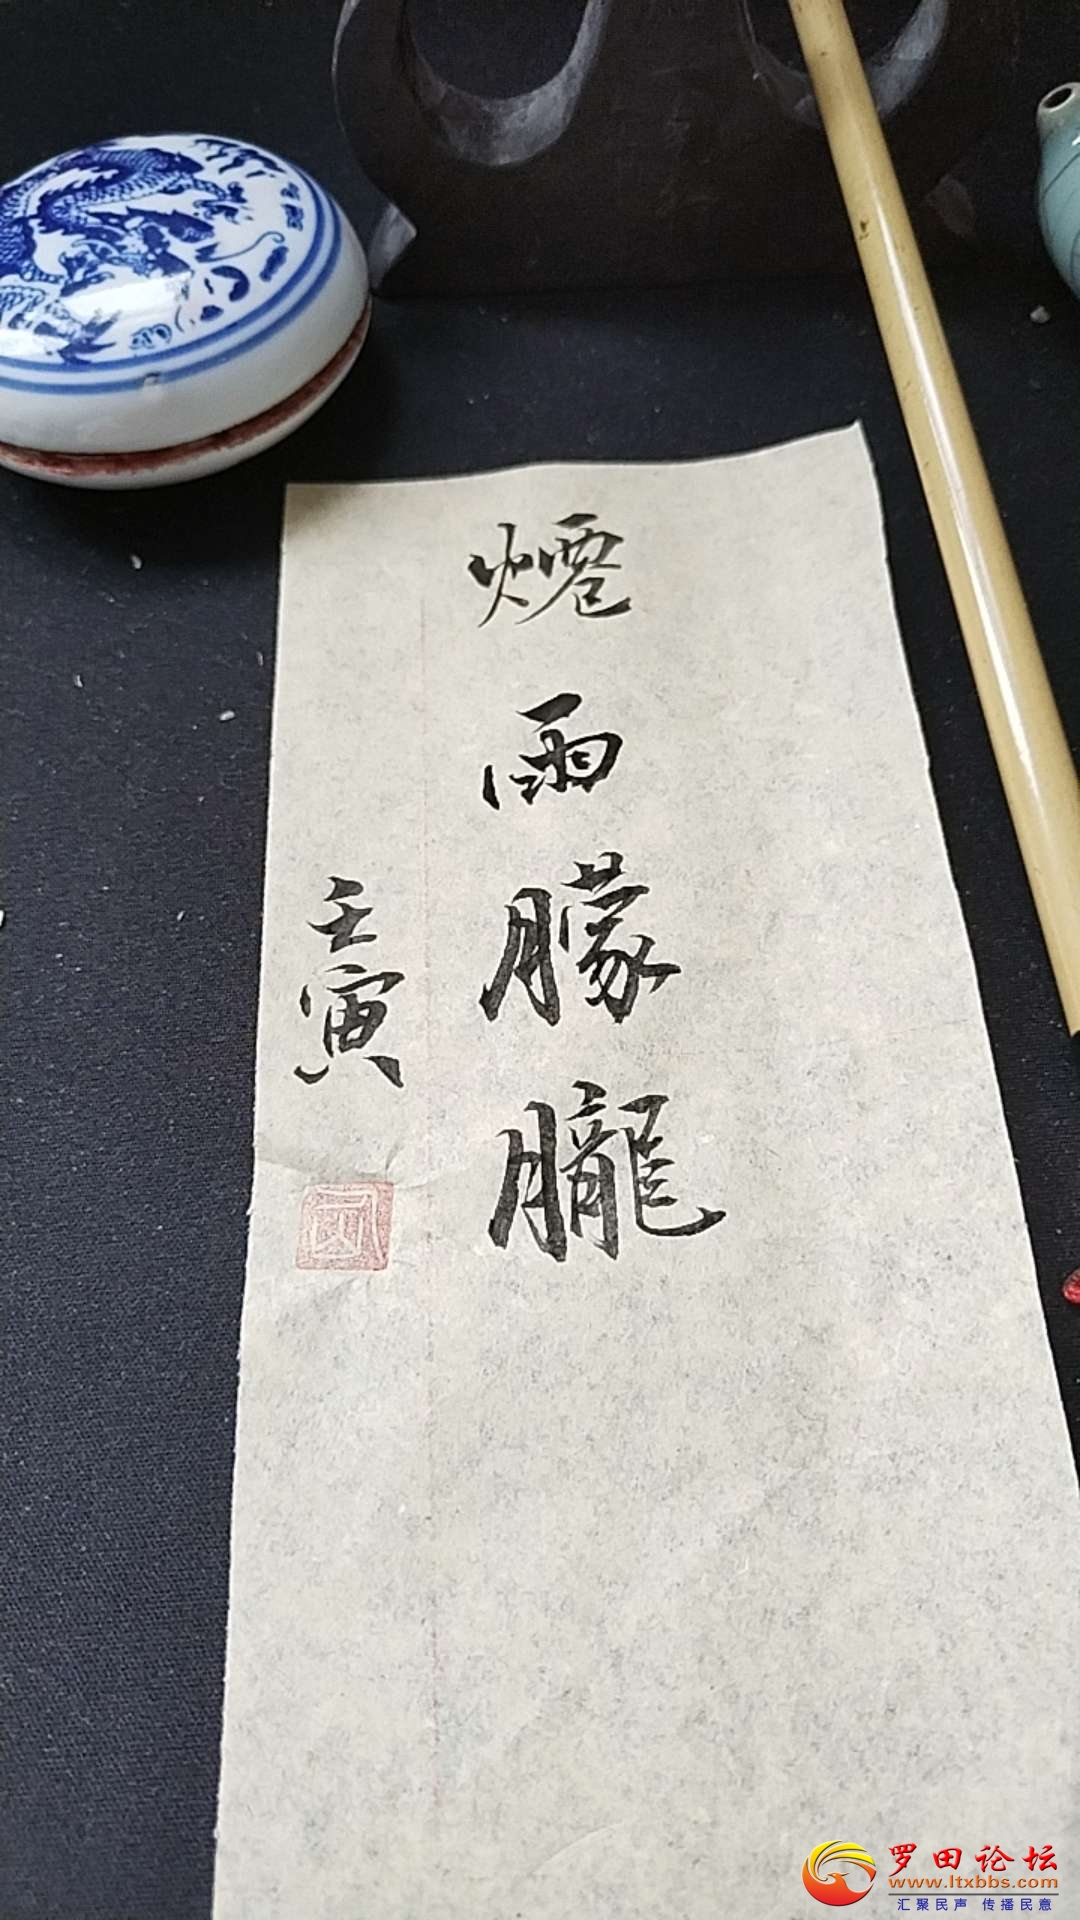 煙雨朦朧
壬寅
罗田论坛
www.ltxbbs.com
汇聚民声 传播民意